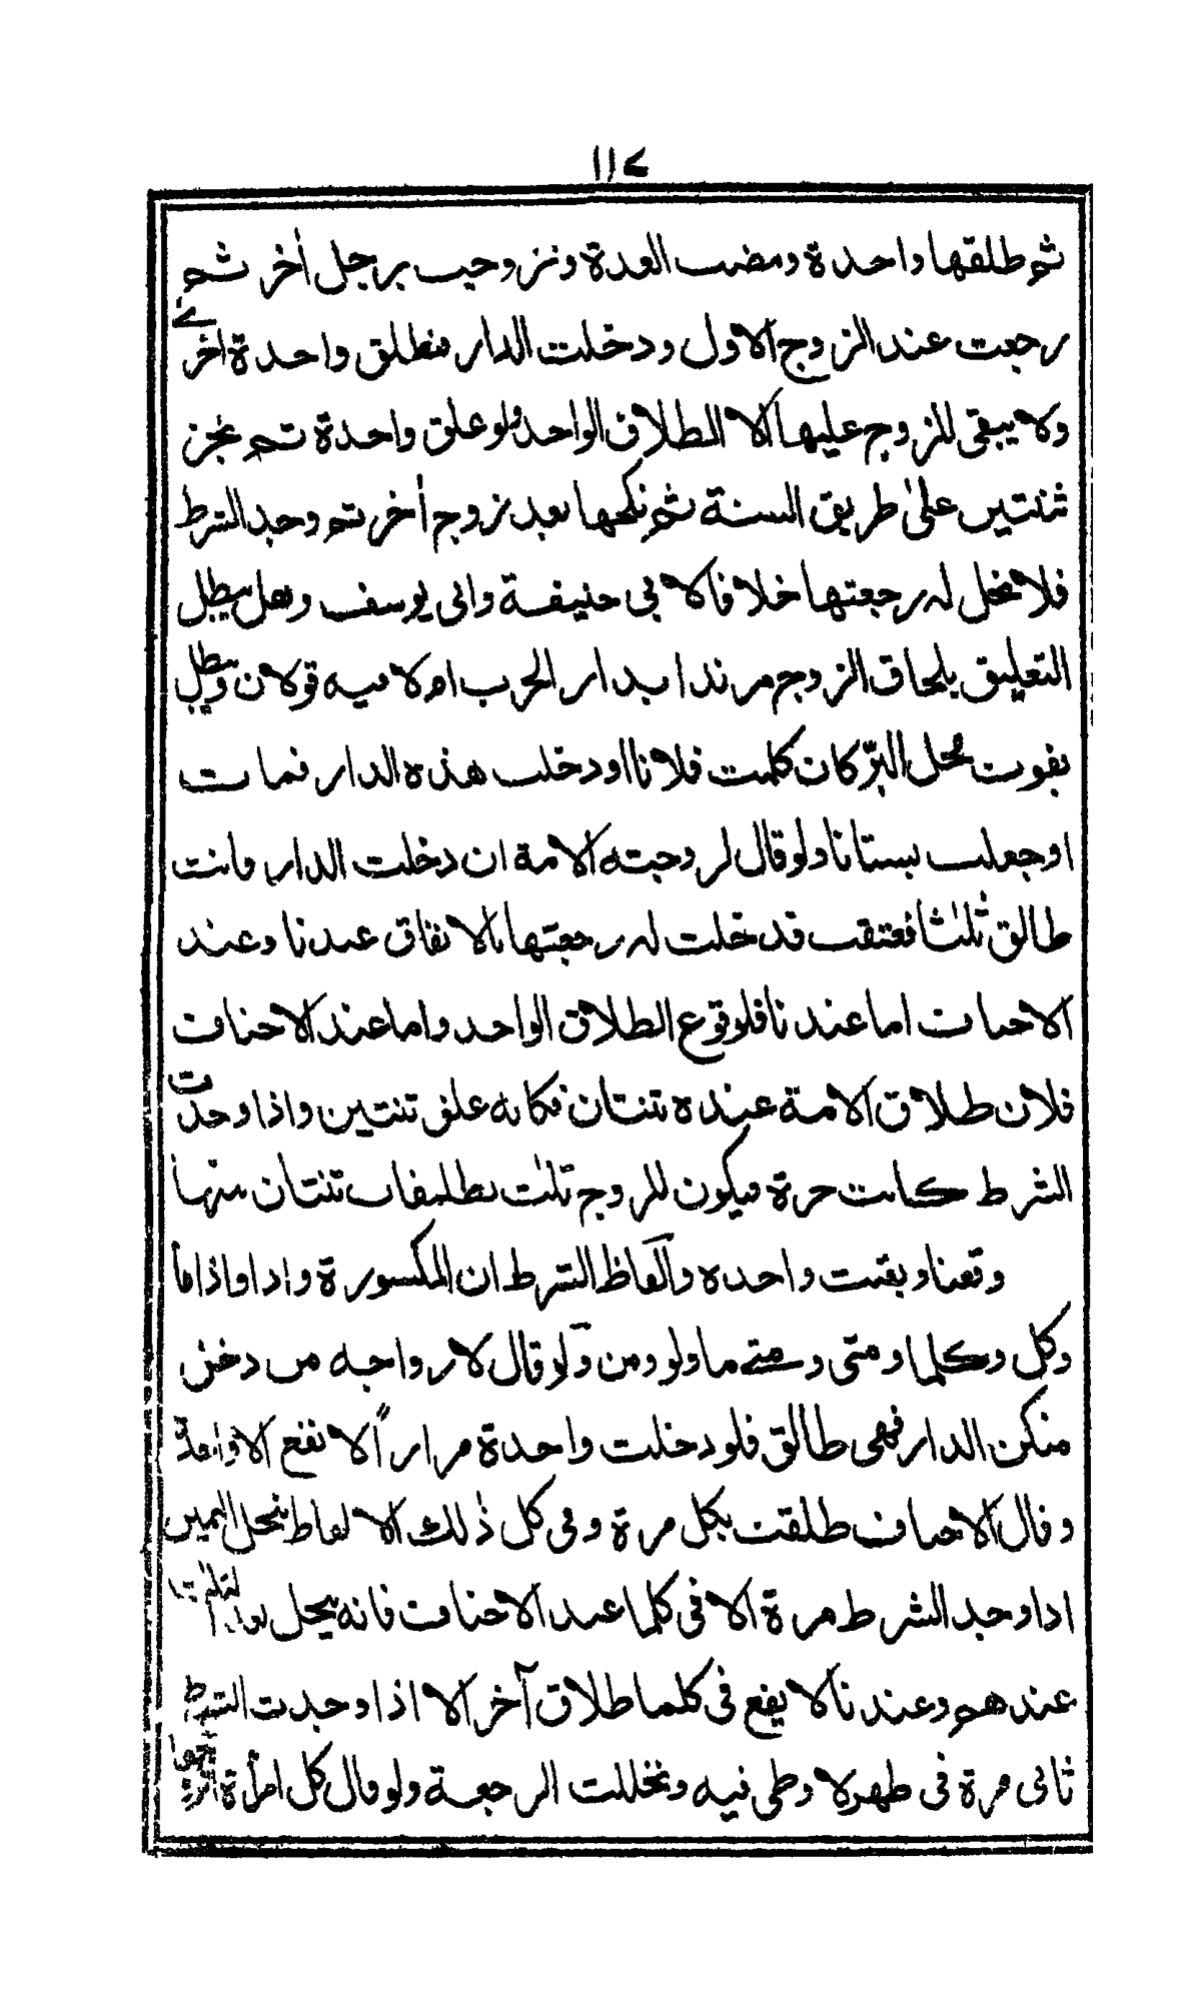 ١١٧
ثم طلقها واحدة ومضت العدة وتزوجت برجل أخر ثم
رجعت عند الزوج الاول ودخلت الدار فتطلق واحدة اخرے
ولا يبقى للزوج عليها الا الطلاق الواحد ولو علق واحدة ثم نجز
ثنتين علىٰ طريق السنة ثم نكحها بعد زوج أخر ثم وجد الشرط
فلا تحل له رجعتها خلافا لابي حنيفة وابي يوسف وهل يبطل
التعليق بلحاق الزوج مرتدا بدار الحرب ام لا فيه قولان ويبطل
بفوت محل البرّ كان كلمت فلانا او دخلت هذه الدار فمات
او جعلت بستانا ولو قال لزوجته الامة ان دخلت الدار فانت
طالق ثلٰثا فعتقت فدخلت له رجعتها بالاتفاق عندنا وعند
الاحناف اما عندنا فلوقوع الطلاق الواحد واما عند الاحناف
فلان طلاق الامة عنده ثنتان فكانه علق ثنتين واذا وجدت
الشرط كانت حرة فيكون للزوج ثلٰث تطليقات ثنتان منها
وقعتا وبقيت واحده والفاظ الشرط ان المكسورة واذا واذاما
وكل وكلما ومتى ومتے ما ولو ومن ولو قال لازواجه من دخلن
منكن الدار فهى طالق فلو دخلت واحدة مراراً لا تقع الا واحدة
وقال الاحناف طلقت بكل مرة وفى كل ذٰلك الالفاظ ينحل اليمين
اذا وجد الشرط مرة الا فى كلما عند الاحناف فانه ينحل بعد الثلٰث
عندهم وعندنا لا يقع فى كلما طلاق آخر الا اذا وجدت الشرط
ثانى مرة فى طهر لا وطى فيه وتخللت الرجعة ولو قال كل امرأة